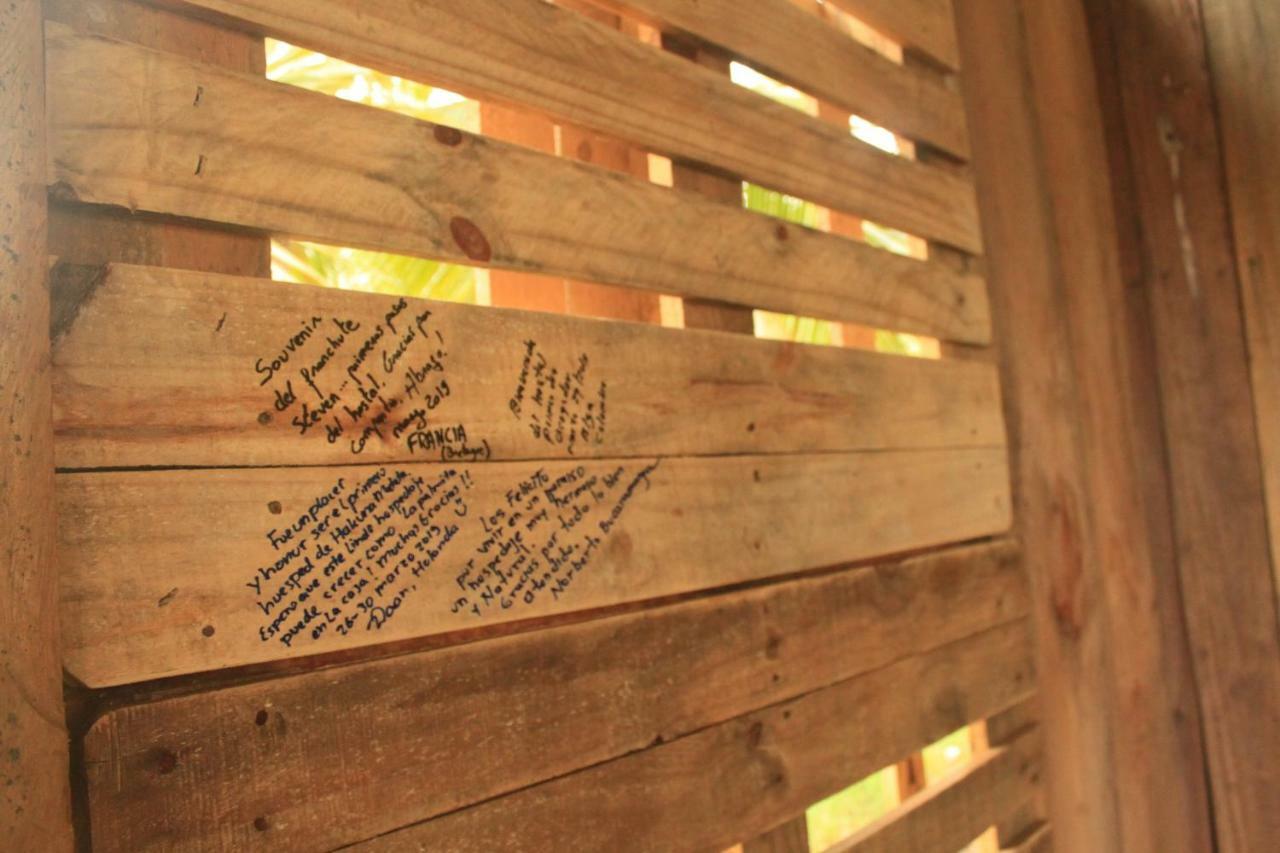 Souvenir
del franchute
Steven... primeros pasos
del hostal. Gracias por
compartir. A/braza!
mayo 2019
FRANCIA
del hostal
para
Fue un placer
y honor ser el primero
huesped de Hakuna Matata.
Espero que este linda hospedaje
puede crecer como la palmita
en la casa; muchas Gracias!!
26-30 marzo 2019
Door, Holanda
Los Felicito
por vivir en un paraiso
un hospedaje muy hermoso
y Natural.
Gracias por todo lo bien
atendido.
Norberto Bucaramanga